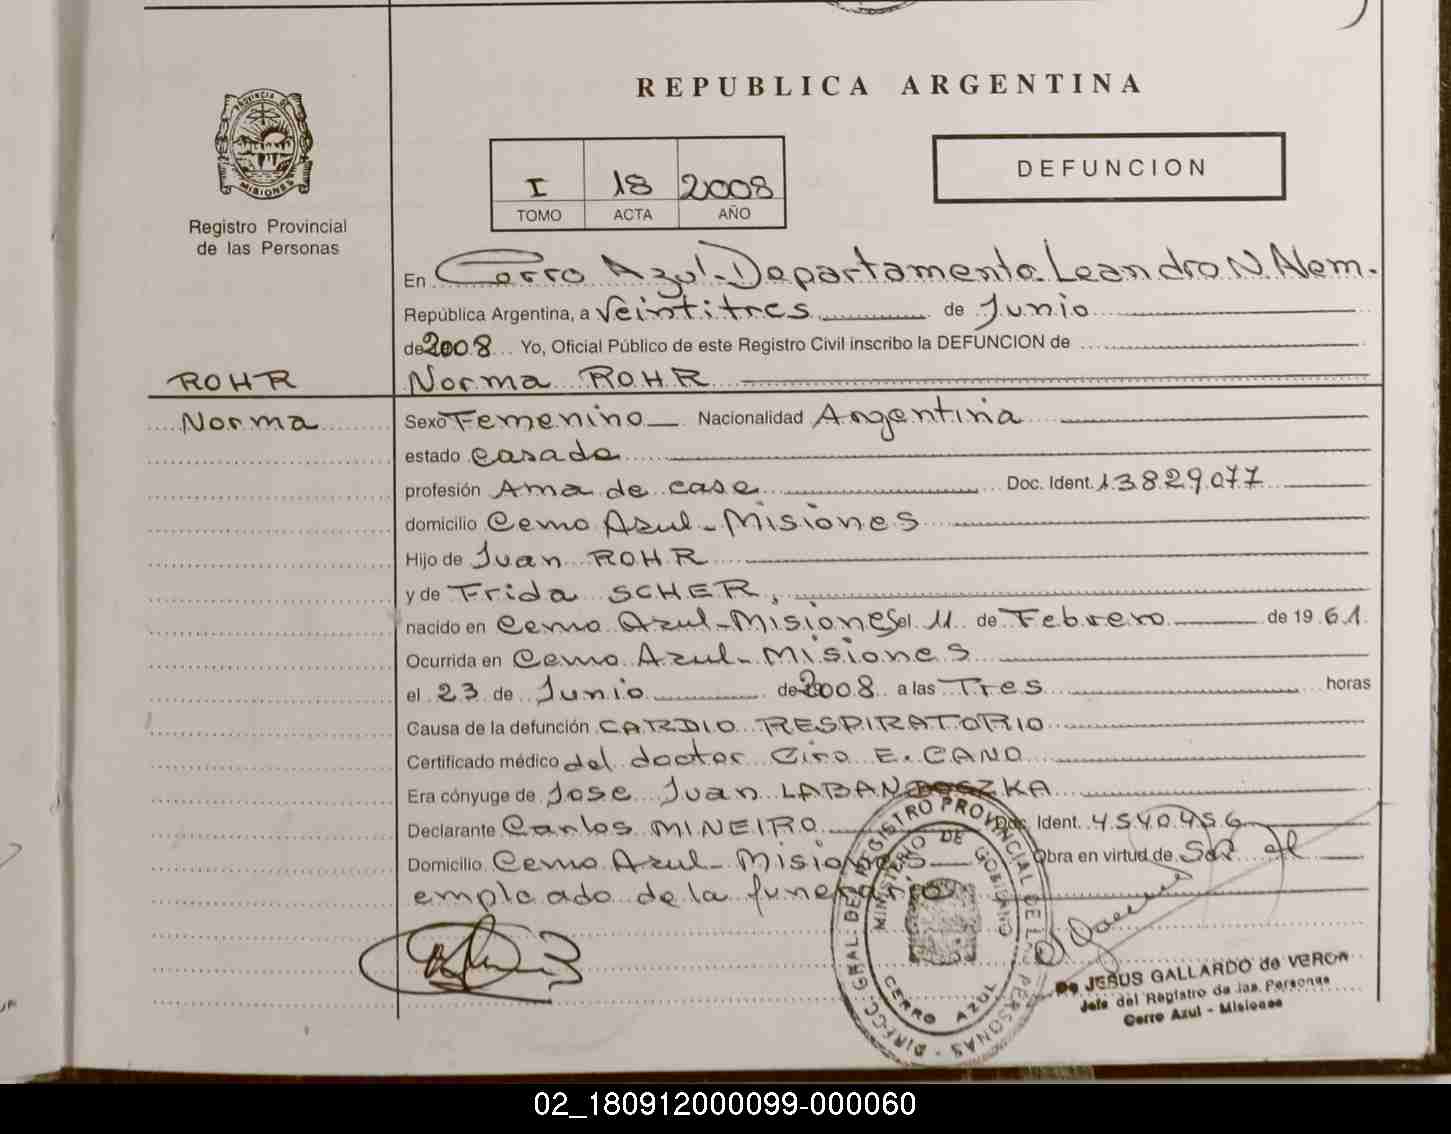 REPUBLICA ARGENTINA
PROVINCIA DE
MISIONES
Registro Provincial
de las Personas
I 18 2008
TOMO ACTA AÑO
DEFUNCION
En Cerro Azul-Departamento Leandro N. Alem.
República Argentina, a Veintitres de Junio
de 2008 Yo, Oficial Público de este Registro Civil inscribo la DEFUNCION de
ROHR
Norma ROHR
Norma
Sexo Femenino Nacionalidad Argentina
estado Casada
profesión Ama de casa Doc. Ident. 13829077
domicilio Cerro Azul-Misiones
Hijo de Juan ROHR
y de Frida SCHER,
nacido en Cerro Azul-Misiones el 11 de Febrero de 1961
Ocurrida en Cerro Azul-Misiones
el 23 de Junio de 2008 a las Tres horas
Causa de la defunción CARDIO RESPIRATORIO
Certificado médico del doctor Ciro E. CANO
Era cónyuge de Jose Juan LABANDOSZKA
Declarante Carlos MINEIRO Doc. Ident. 4540456
Domicilio Cerro Azul-Misiones Obra en virtud de Ser el
empleado de la funeraria
DIREC. GRAL. DEL REGISTRO PROVINCIAL DE LAS PERSONAS
MINISTERIO DE GOBIERNO
CERRO AZUL
JESUS GALLARDO de VERON
Jefe del Registro de las Personas
Cerro Azul - Misiones
02_180912000099-000060